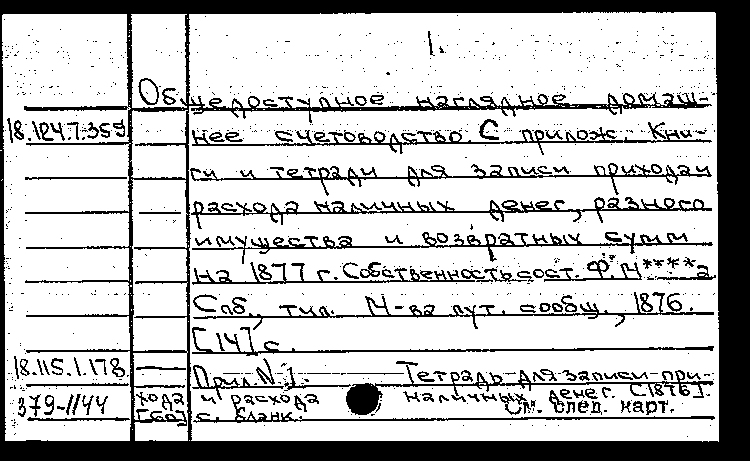 1.
Общедоступное наглядное домаш-
18.124.7.359 нее счетоводство. С прилож. Кни-
ги и тетради для записи прихода и
расхода наличных денег, разного
имущества и возвратных сумм
на 1877 г. Собственность сост. Ф. М****а
Спб., тип. М-ва пут. сообщ., 1876.
[14] с.
18.115.1.178 Прил. N 1. Тетрадь для записи при-
379-1144 хода и расхода наличных денег. [1876].
[60] с. бланк. См. след. карт.